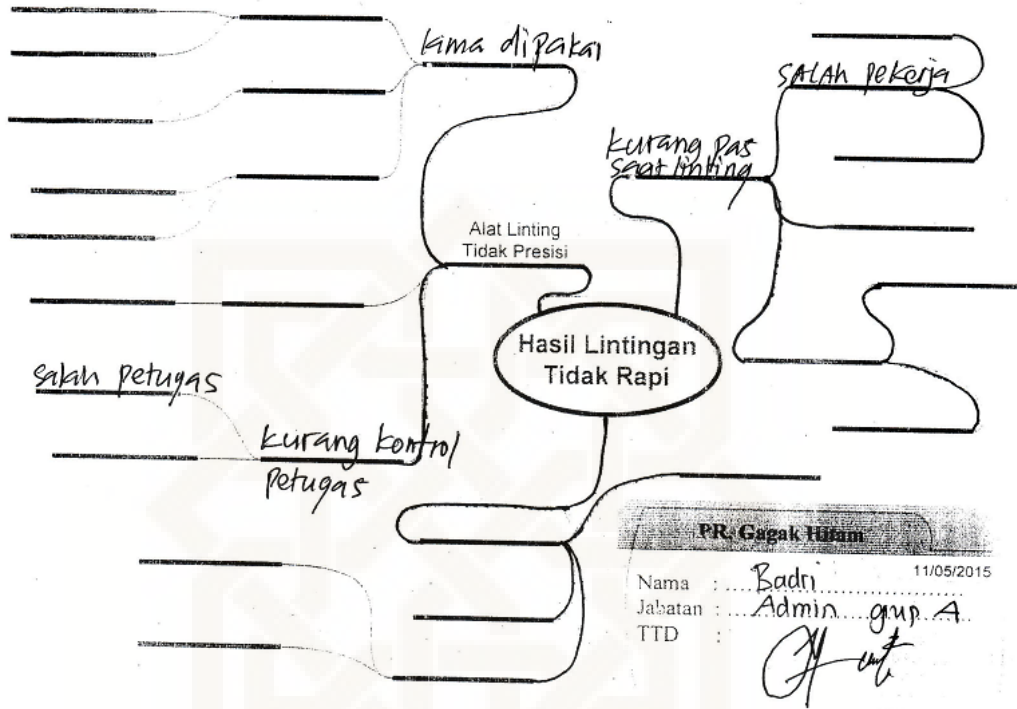 kima dipakai
SALAH pekerja
kurang pas
saat linting
Alat Linting
Tidak Presisi
Hasil Lintingan
Tidak Rapi
salah petugas
kurang kontrol
petugas
PR. Gagak Hitam
11/05/2015
Nama : Badri
Jabatan : Admin grup A
TTD :